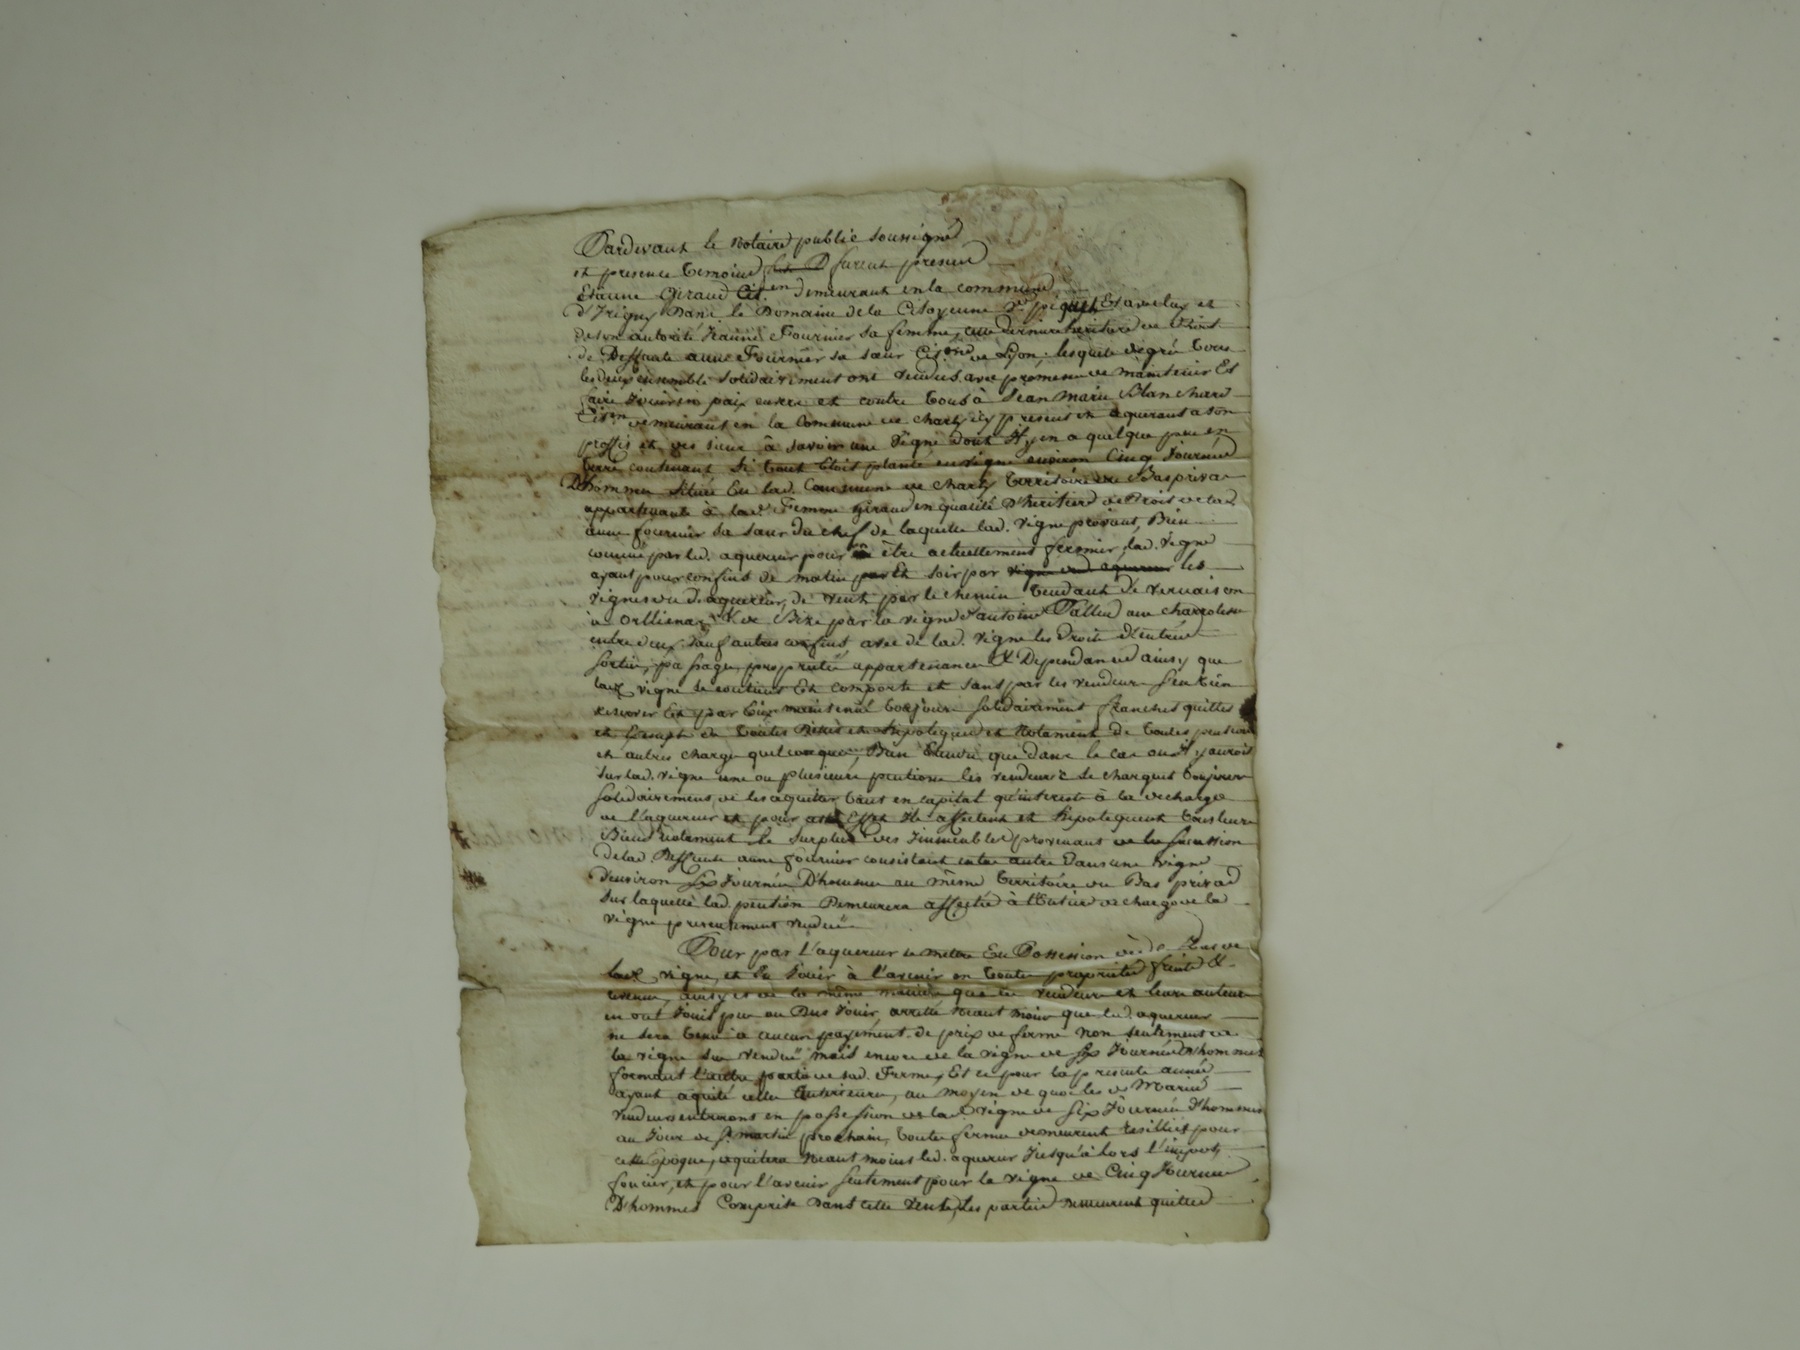 Pardevant le Notaire public soussigné
et presence temoins furent present
Etienne Giraud Cit.en demeurant en la commune
d'Irigny Dans le Domaine de la Citoyenne et
de son autorité Jeanne Fournier sa femme, cette derniere heritiere de Droit
de Deffunte anne Fournier sa sœur Cit.enne de Lyon, lesquels de gré tous
les deux ensemble solidairement ont vendus avec promesse de maintenir Et
faire Jouir en paix envers et contre tous à Jean Marie Blanchard
Cit.en demeurant en la Commune de Charly icy present et aquerant a son
proffit et des siens à savoir une Vigne dont Il y en a quelque peu en
terre contenant Si tout Etoit planté en vigne environ Cinq Journée
D'hommes Située En lad. Commune de Charly territoire du Bas privas
appartenante à lad.e Femme Giraud en qualité D'heritiere de Droit de lad.
anne fournier sa sœur Du chef de laquelle lad. Vigne provient, Bien
connue par led. aquereur pour en être actuellement fermier, lad. vigne
ayant pour confins de matin par Et soir par vigne dud. aquereur les
vignes du d. aquereur, de vent par le chemin tendant de Vernaison
à Orlienas, & de Bize par la vigne d'antoine
entre deux, sauf autres confins, avec de lad. vigne les Droits d'entrées
sorties, passages, proprietés appartenances & Dependances ainsy que
lad. vigne se contient Et comporte et sans par les vendeurs s'en rien
reserver Et par Eux maintenue toujours solidairement franches quittes
et Exempte de toutes Dettes et Hipoteques et Notament de toutes pensions
et autres charges quelconques, Bien Entendu que dans le cas ou Il y auroit
sur lad. vigne une ou plusieurs pentions les vendeurs se chargent toujours
solidairement de les aquiter tant en capital qu'interets à la decharge
de l'aquereur et pour cet Effet Ils affectent et Hipotequent tous leurs
Biens Notament le surplus des Immeubles provenant de la succession
de lad. Deffunte anne fournier consistent entre autre Dans une vigne
d'environ six Journées D'hommes au même territoire du Bas privas
sur laquelle lad. pention Demeurera affectée à l'Entiere decharge de la
vigne presentement vendue
Pour par L'aquereur se mettre En Possession dès de
lad. vigne, et En Jouir à l'avenir en toutes proprietés fruits &
revenu, ainsy et de la même maniere que les vendeurs et leurs auteurs
en ont Jouis pu ou Dus Jouir, arretté Neant moins que led. aquereur
ne sera tenu à aucun payement de prix de ferme non seulement de
la vigne sus vendue mais encore de la vigne de six Journées D'hommes
formant l'autre partie de sad. Ferme, Et ce pour la presente année
ayant aquité celle Anterieure, au moyen de quoi les d. Mariés
vendeurs entreront en possession de lad. vigne de six Journées D'hommes
au Jour de St. martin prochain, toutes fermes demeurent resilliés pour
cette Epoque, aquitera Neant moins led. aquereur Jusqu'à Lors l'impots
foncier, et pour l'avenir seulement pour la vigne de Cinq Journées
D'hommes Comprise Dans cette Vente, Les parties Demeurent quittes